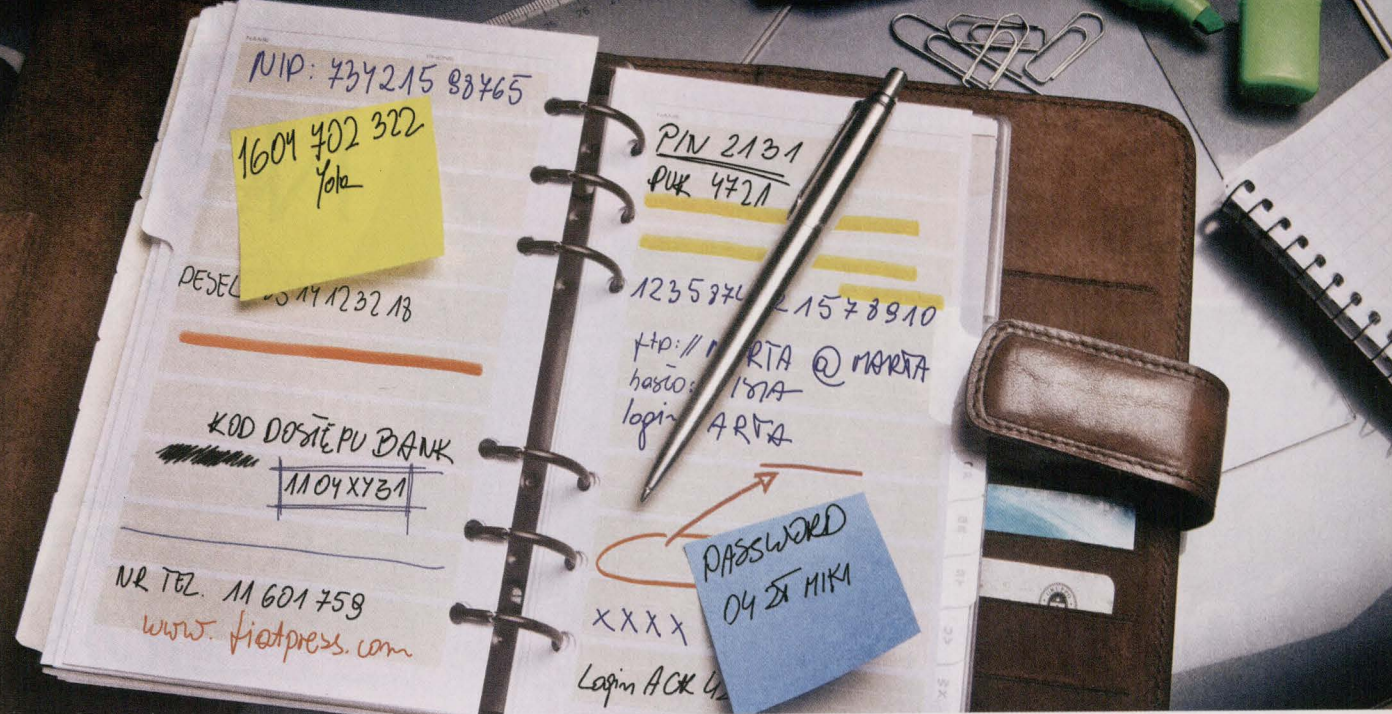 NIP: 734215 98765
1604 702 322
Jola
PESEL 1412 32 18
KOD DOSTĘPU BANK
1104XY31
NR TEL. 11 601 759
www.fiatpress.com
PIN 2131
PUK 4721
123587 21578910
ftp:// RTA @ MARTA
hasło:
login ARTA
PASSWORD
04 ZŁ MIKI
XXXX
Login ACK